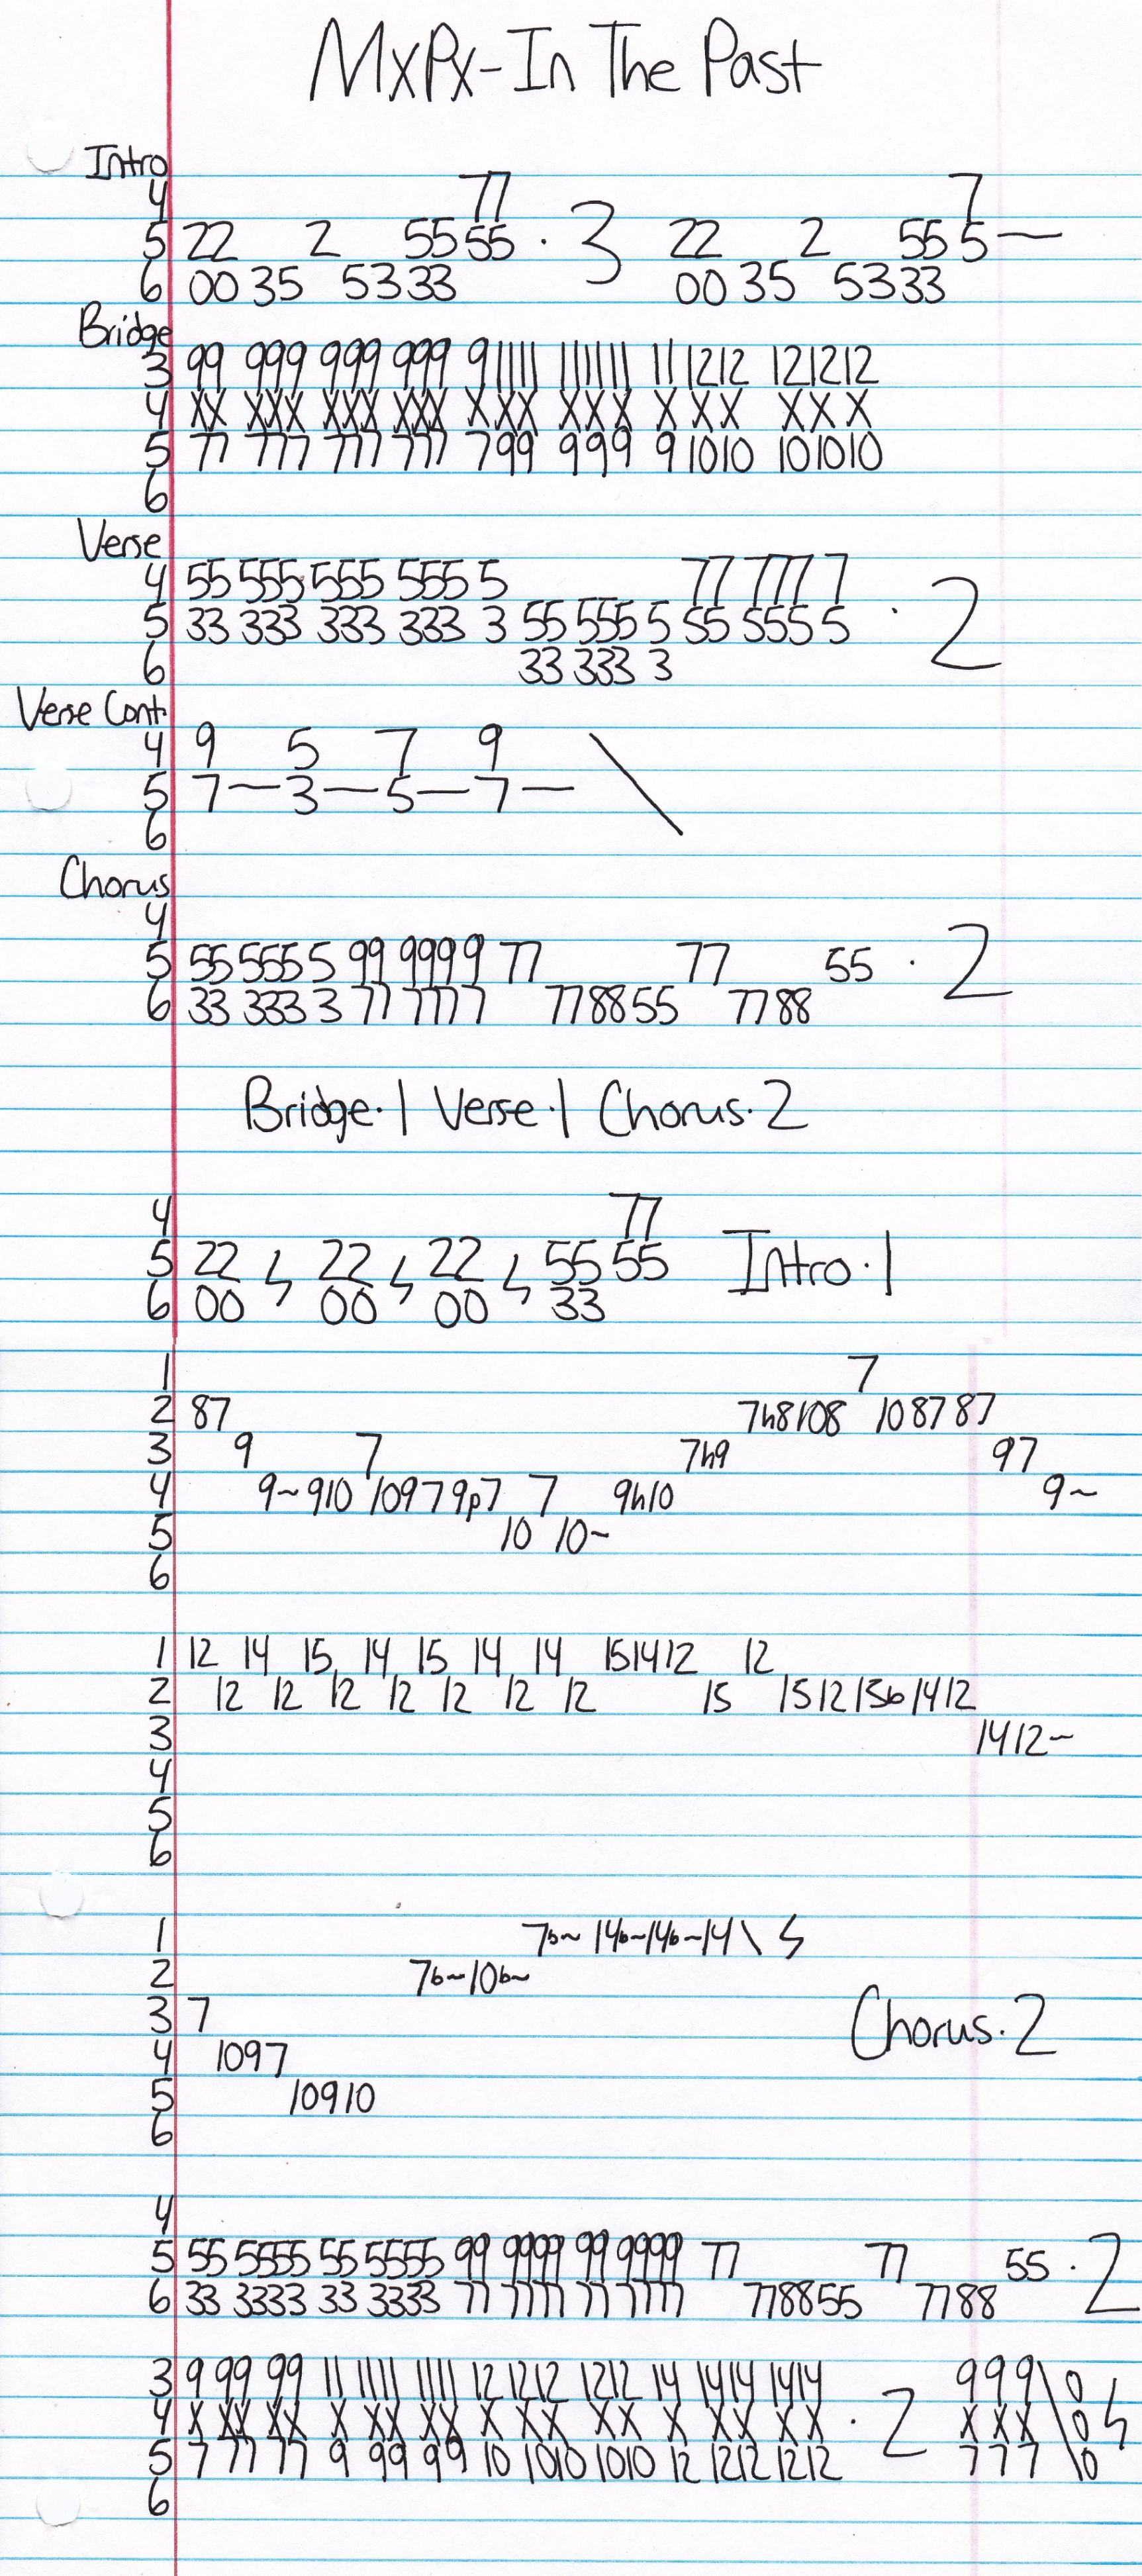 MxPx-In The Past
Intro
4 77 7
5 22 2 55 55 · 3 22 2 55 5—
6 00 35 53 33 00 35 53 33
Bridge
3 99 999 999 999 9 11 11 11 11 11 11 12 12 12 12 12
4 XX XXX XXX XXX XXX XXX X XX XXX
5 77 777 777 777 799 999 9 10 10 10 10 10
6
Verse
4 55 555 555 555 5 77 777 7
5 33 333 333 333 3 55 555 5 55 555 5 · 2
6 33 333 3
Verse Cont.
4 9 5 7 9 \
5 7—3—5—7—
6
Chorus
4
5 55 555 5 99 999 9 77 77 55 · 2
6 33 333 3 77 777 7 77 88 55 77 88
Bridge·1 Verse·1 Chorus·2
4 77
5 22 22 22 55 55 Intro·1
6 00 00 00 33
1 7
2 87 7h8108 108787
3 9 7 7h9 97
4 9~910 10979p7 7 9h10 9~
5 10 10~
6
1 12 14 15 14 15 14 14 151412 12
2 12 12 12 12 12 12 12 15 151215b1412
3 1412~
4
5
6
1 7b~ 14b~14b~14\
2 7b~10b~
3 7 Chorus·2
4 1097
5 10910
6
4
5 55 5555 55 5555 99 9999 99 9999 77 77 55 · 2
6 33 3333 33 3333 77 7777 77 7777 77 88 55 77 88
3 9 99 99 11 11 11 11 11 12 12 12 12 12 14 14 14 14 14 999\0
4 X XX XX X XX XX X XX XX X XX XX · 2 XXX 0
5 7 77 77 9 99 99 10 1010 1010 12 1212 1212 777 0
6